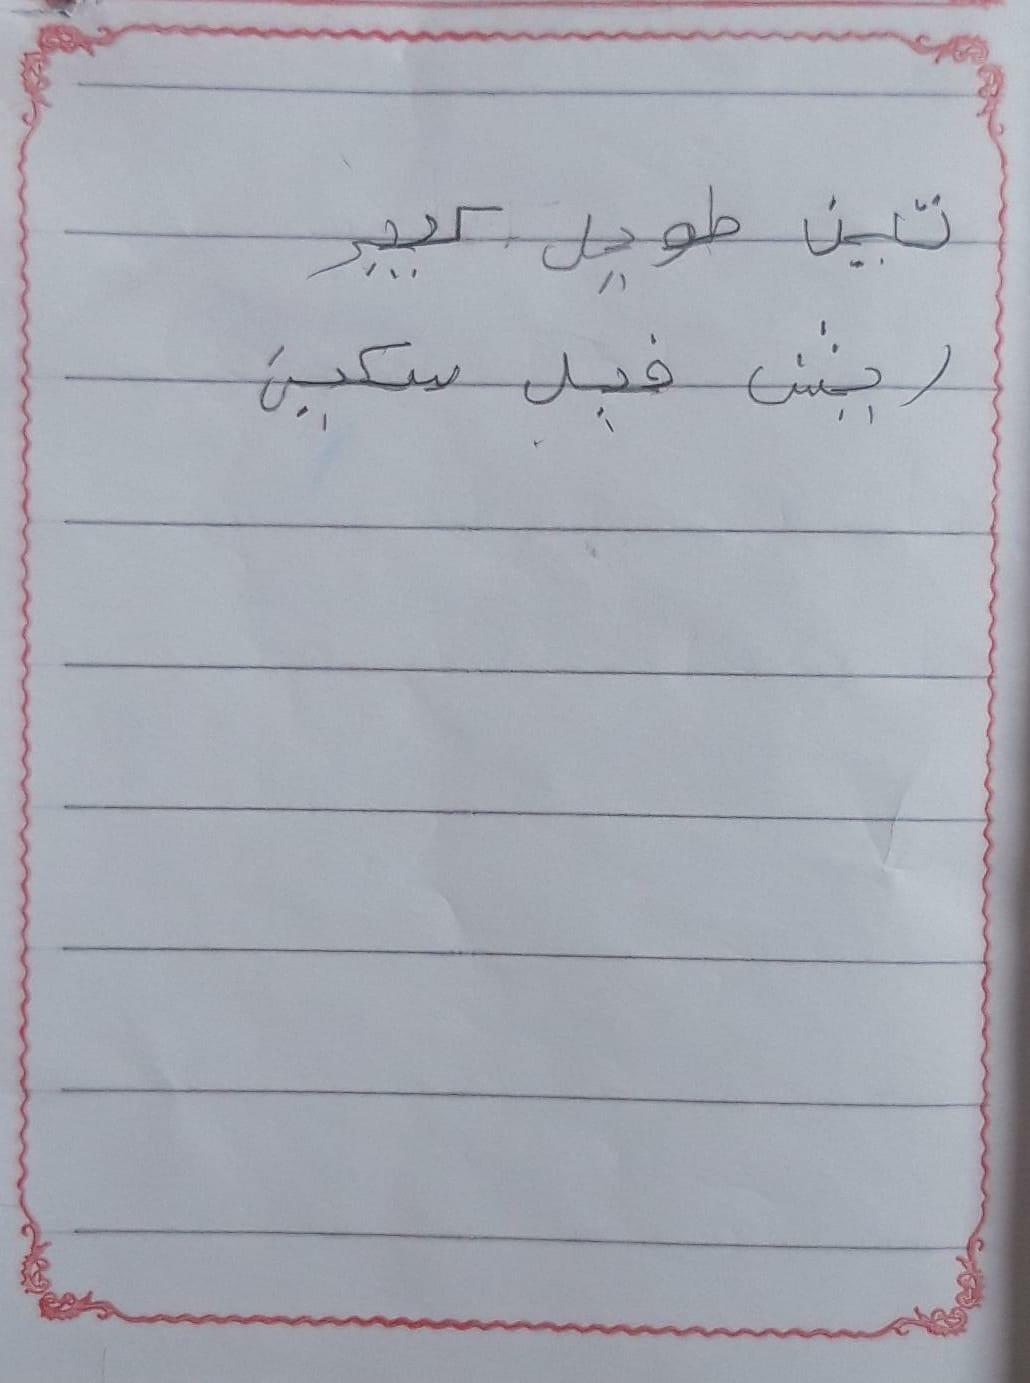 تين طويل كبير
ريش فيل سكين